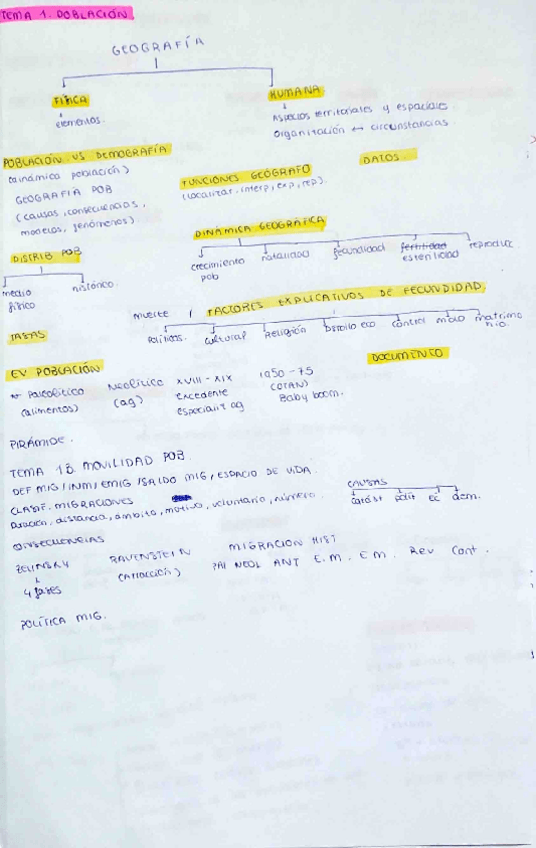 TEMA 1. POBLACIÓN.
GEOGRAFÍA
FÍSICA
HUMANA
elementos.
Aspectos territoriales y espaciales
Organización ↔ circunstancias.
POBLACIÓN VS DEMOGRAFÍA
(dinámica población)
GEOGRAFIA POB
(causas, consecuencias,
modelos, fenómenos)
FUNCIONES GEÓGRAFO
(localizar, interp, exp, rep).
DATOS
DINÁMICA GEOGRÁFICA
crecimiento pob
natalidad
fecundidad
fertilidad
esterilidad
reproducc
DISTRIB POB
medio físico
histórico.
TASAS
muerte / FACTORES EXPLICATIVOS DE FECUNDIDAD
Políticos.
cultural
Religión
Dsrollo eco
control
matrimonio.
EV POBLACIÓN
DOCUMENTO
Paleolítico
(alimentos)
Neolítico
(ag)
XVIII - XIX
excedente
especializ ag
1950 - 75
(OTAN)
Baby boom.
PIRÁMIDE.
TEMA 1B. MOVILIDAD POB.
DEF MIG / INM / EMIG / SALDO MIG, ESPACIO DE VIDA.
CLASIF. MIGRACIONES
Duración, distancia, ámbito, motivo, voluntario, número.
CAUSAS
catást polít ec dem.
CONSECUENCIAS
ZELINSKY
4 fases
RAVENSTEIN
(Atracción)
MIGRACION HIST
PAL NEOL ANT E.M. E M. Rev Cont.
POLÍTICA MIG.